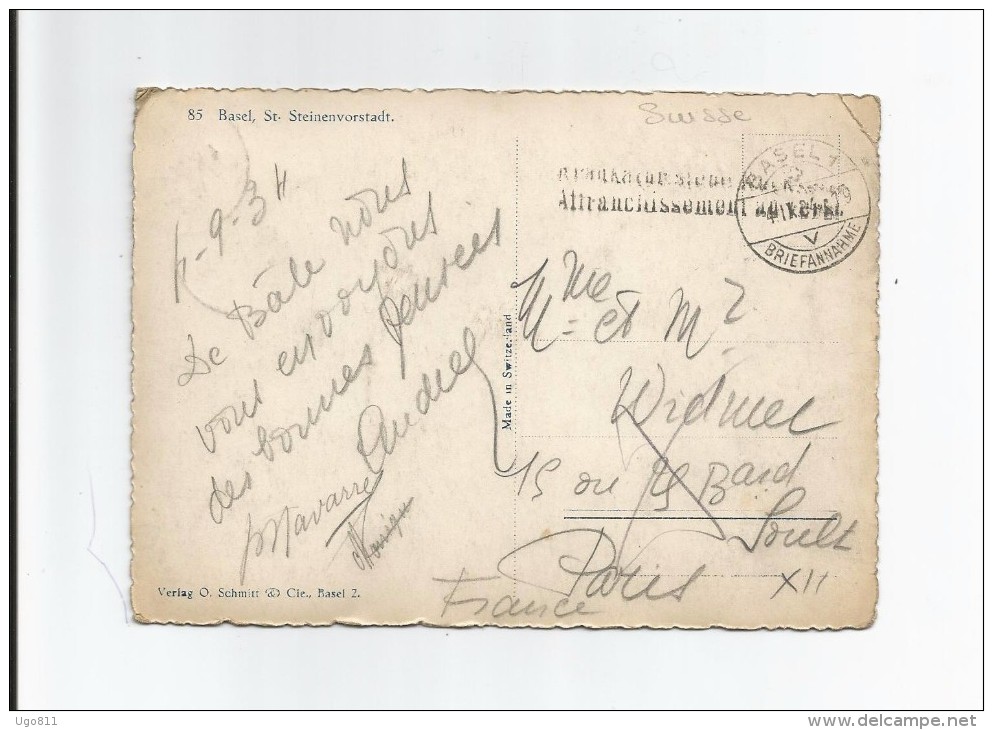 85 Basel, St. Steinenvorstadt.
Suisse
-9-34
De Bâle nous
vous envoyons
des bonnes pensées
Andrel
Navarre
Verlag O. Schmitt & Cie., Basel 2.
Made in Switzerland
Affranchissement au verso.
BASEL 1
BRIEFANNAHME
Mme et Mr
Widmer
15 ou 25 Bard
Soult
Paris XII
France
Ugo811
www.delcampe.net